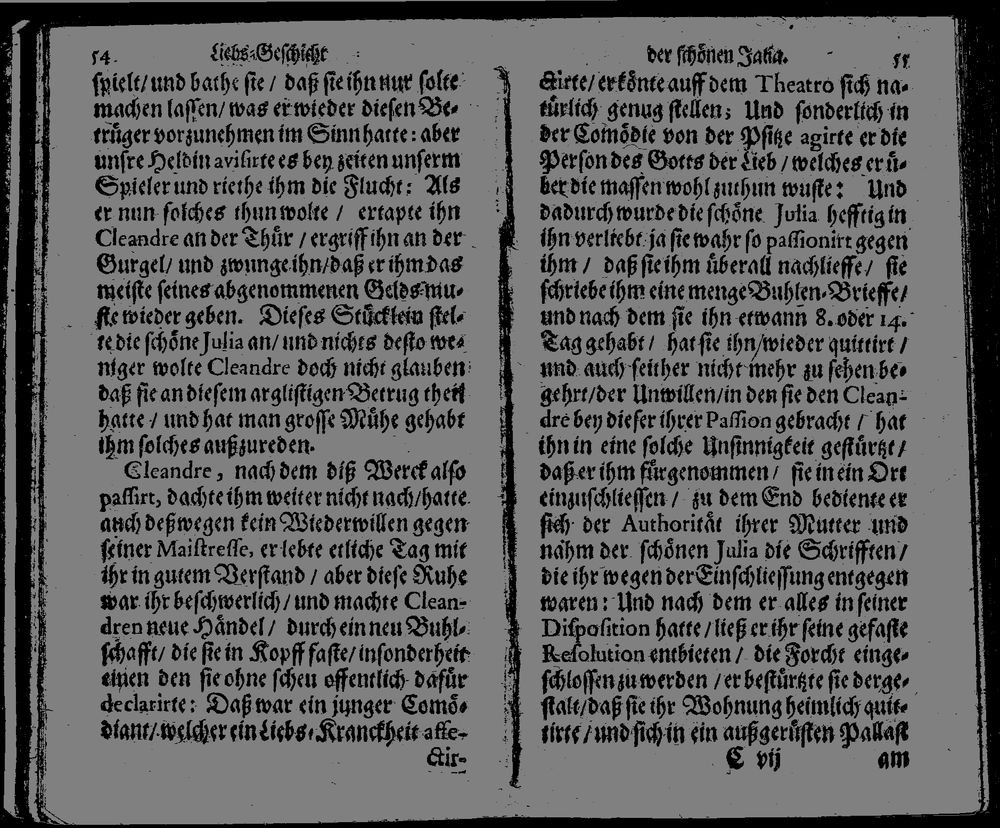 54. Liebs-Geschicht
spielt/ und bathe sie / daß sie ihn nur solte
machen lassen/ was er wieder diesen Be-
trüger vorzunehmen im Sinn hatte: aber
unsre Heldin avisirte es bey zeiten unserm
Spieler und riethe ihm die Flucht: Als
er nun solches thun wolte / ertapte ihn
Cleandre an der Thür / ergriff ihn an der
Gurgel/ und zwunge ihn/ daß er ihm das
meiste seines abgenommenen Gelds mu-
ste wieder geben. Dieses Stücklein stel-
te die schöne Julia an/ und nichts desto we-
niger wolte Cleandre doch nicht glauben
daß sie an diesem arglistigen Betrug theil
hatte / und hat man grosse Mühe gehabt
ihm solches außzureden.
Cleandre, nach dem diß Werck also
passirt, dachte ihm weiter nicht nach/ hatte
auch deßwegen kein Wiederwillen gegen
seiner Maistresse, er lebte etliche Tag mit
ihr in gutem Verstand / aber diese Ruhe
war ihr beschwerlich / und machte Clean-
dren neue Händel / durch ein neu Buhl-
schafft/ die sie in Kopff faste/ insonderheit
einen den sie ohne scheu offentlich dafür
declarirte: Daß war ein junger Comö-
diant/ welcher ein Liebs-Kranckheit affe-
ctir-
der schönen Julia. 55
ctirte/ er könte auff dem Theatro sich na-
türlich genug stellen; Und sonderlich in
der Comödie von der Psitze agirte er die
Person des Gotts der Lieb / welches er ü-
ber die massen wohl zuthun wuste: Und
dadurch wurde die schöne Julia hefftig in
ihn verliebt ja sie wahr so passionirt gegen
ihm / daß sie ihm überall nachlieffe / sie
schriebe ihm eine menge Buhlen-Brieffe/
und nach dem sie ihn etwann 8. oder 14.
Tag gehabt / hat sie ihn/ wieder quittirt /
und auch seither nicht mehr zu sehen be-
gehrt/ der Unwillen/ in den sie den Clean-
dre bey dieser ihrer Passion gebracht / hat
ihn in eine solche Unsinnigkeit gestürtzt/
daß er ihm fürgenommen / sie in ein Ort
einzuschliessen / zu dem End bediente er
sich der Authorität ihrer Mutter und
nahm der schönen Julia die Schrifften /
die ihr wegen der Einschliessung entgegen
waren: Und nach dem er alles in seiner
Disposition hatte / ließ er ihr seine gefaste
Resolution entbieten / die Forcht einge-
schlossen zu werden / er bestürtzte sie derge-
stalt/ daß sie ihr Wohnung heimlich quit-
tirte / und sich in ein außgerüsten Pallast
C vij am